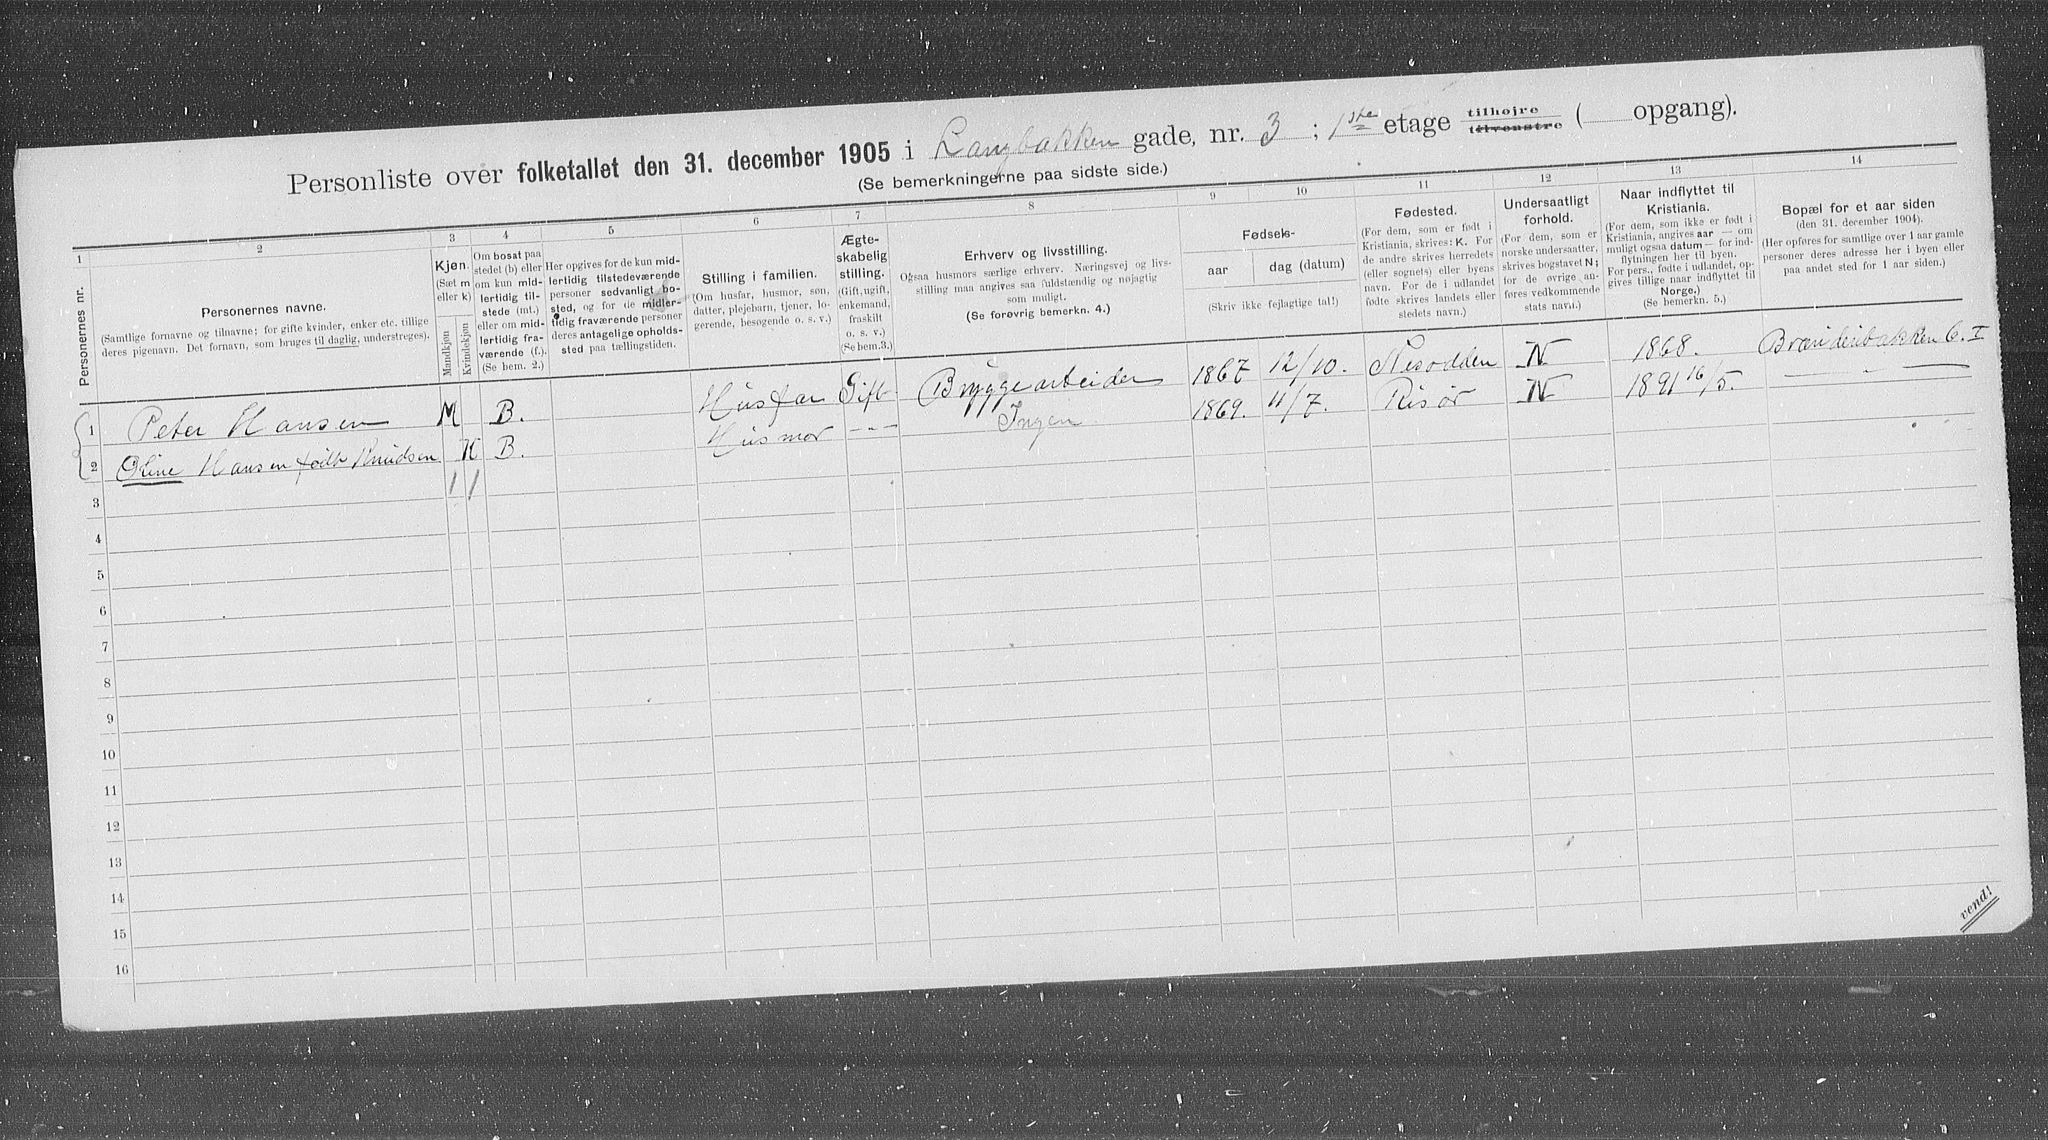 Personliste over folketallet den 31. december 1905 i Langbakken gade, nr. 3 ; 1ste etage tilhøjre tilvenstre ( opgang).
(Se bemerkningerne paa sidste side.)
1 2 3 4 5 6 7 8 9 10 11 12 13 14
Personernes nr.
Personernes navne.
(Samtlige fornavne og tilnavne; for gifte kvinder, enker etc. tillige
deres pigenavn. Det fornavn, som bruges til daglig, understreges).
Kjøn.
(Sæt m
eller k)
Mandkjøn
Kvindekjøn
Om bosat paa
stedet (b) eller
om kun mid-
lertidig til-
stede (mt.)
eller om mid-
lertidig fra-
værende (f.).
(Se bem. 2.)
Her opgives for de kun mid-
lertidig tilstedeværende
personer sedvanligt bo-
sted, og for de midler-
tidig fraværende personer
deres antagelige opholds-
sted paa tællingstiden.
Stilling i familien.
(Om husfar, husmor, søn,
datter, plejebarn, tjener, lo-
gerende, besøgende o. s. v.)
Ægte-
skabelig
stilling.
(Gift, ugift,
enkemand,
fraskilt
o. s. v.)
(Se bem.3.)
Erhverv og livsstilling.
Ogsaa husmors særlige erhverv. Næringsvej og livs-
stilling maa angives saa fuldstændig og nøjagtig
som muligt.
(Se forøvrig bemerkn. 4.)
Fødsels-
aar
dag (datum)
(Skriv ikke fejlagtige tal!)
Fødested.
(For dem, som er født i
Kristiania, skrives: K. For
de andre skrives herredets
(eller sognets) eller byens
navn. For de i udlandet
fødte skrives landets eller
stedets navn.)
Undersaatligt
forhold.
(For dem, som er
norske undersaatter,
skrives bogstavet N;
for de øvrige an-
føres vedkommende
stats navn.)
Naar indflyttet til
Kristiania.
(For dem, som ikke er født i
Kristiania, angives aar — om
muligt ogsaa datum — for ind-
flytningen her til byen.
For pers., fødte i udlandet, op-
gives tillige naar indflyttet til
Norge.)
(Se bemerkn. 5.)
Bopæl for et aar siden
(den 31. december 1904).
(Her opføres for samtlige over 1 aar gamle
personer deres adresse her i byen eller
paa andet sted for 1 aar siden.)
1 Peter Hansen M B. Husfar Gift Bryggearbeider 1867 12/10. Nesodden N 1868. Brænderibakken 6. I
2 Oline Hansen født Knudsen K B. Husmor - - - Ingen 1869. 11/7. Risør N 1891 16/5. — " —
3
4
5
6
7
8
9
10
11
12
13
14
15
16
vend!